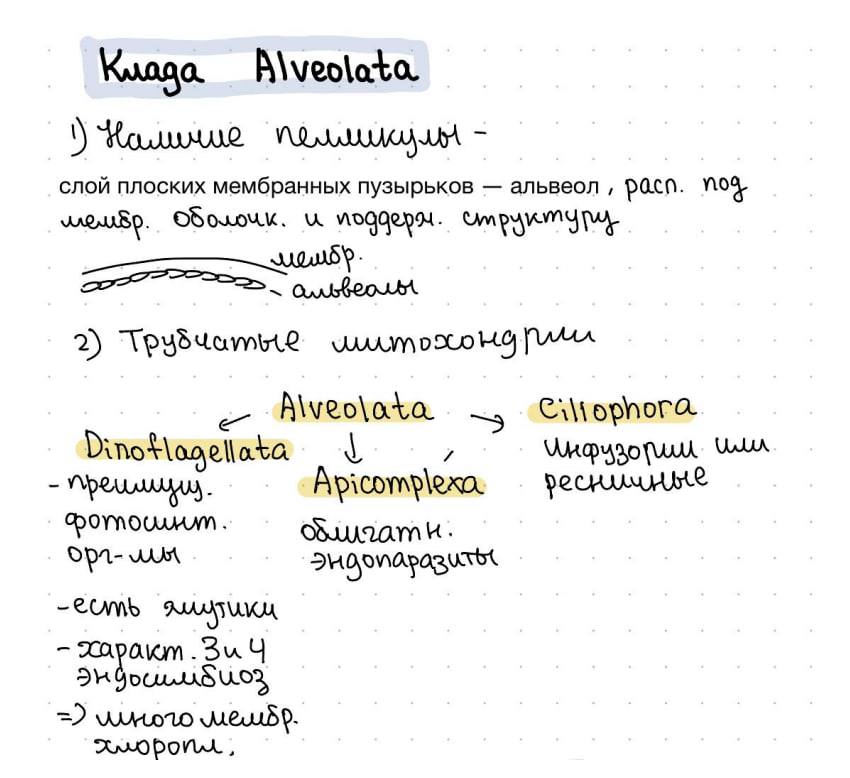 Клада Alveolata
1) Наличие пелликулы -
слой плоских мембранных пузырьков — альвеол , расп. под
мембр. оболочк. и поддерж. структуру
мембр.
альвеолы
2) Трубчатые митохондрии
Alveolata
Dinoflagellata
- преимущ.
фотосинт.
орг-мы
- есть жгутики
- характ. 3 и 4
эндосимбиоз
=) много мембр.
хлоропл,
Apicomplexa
облигатн.
эндопаразиты
Ciliophora
Инфузории или
ресничные